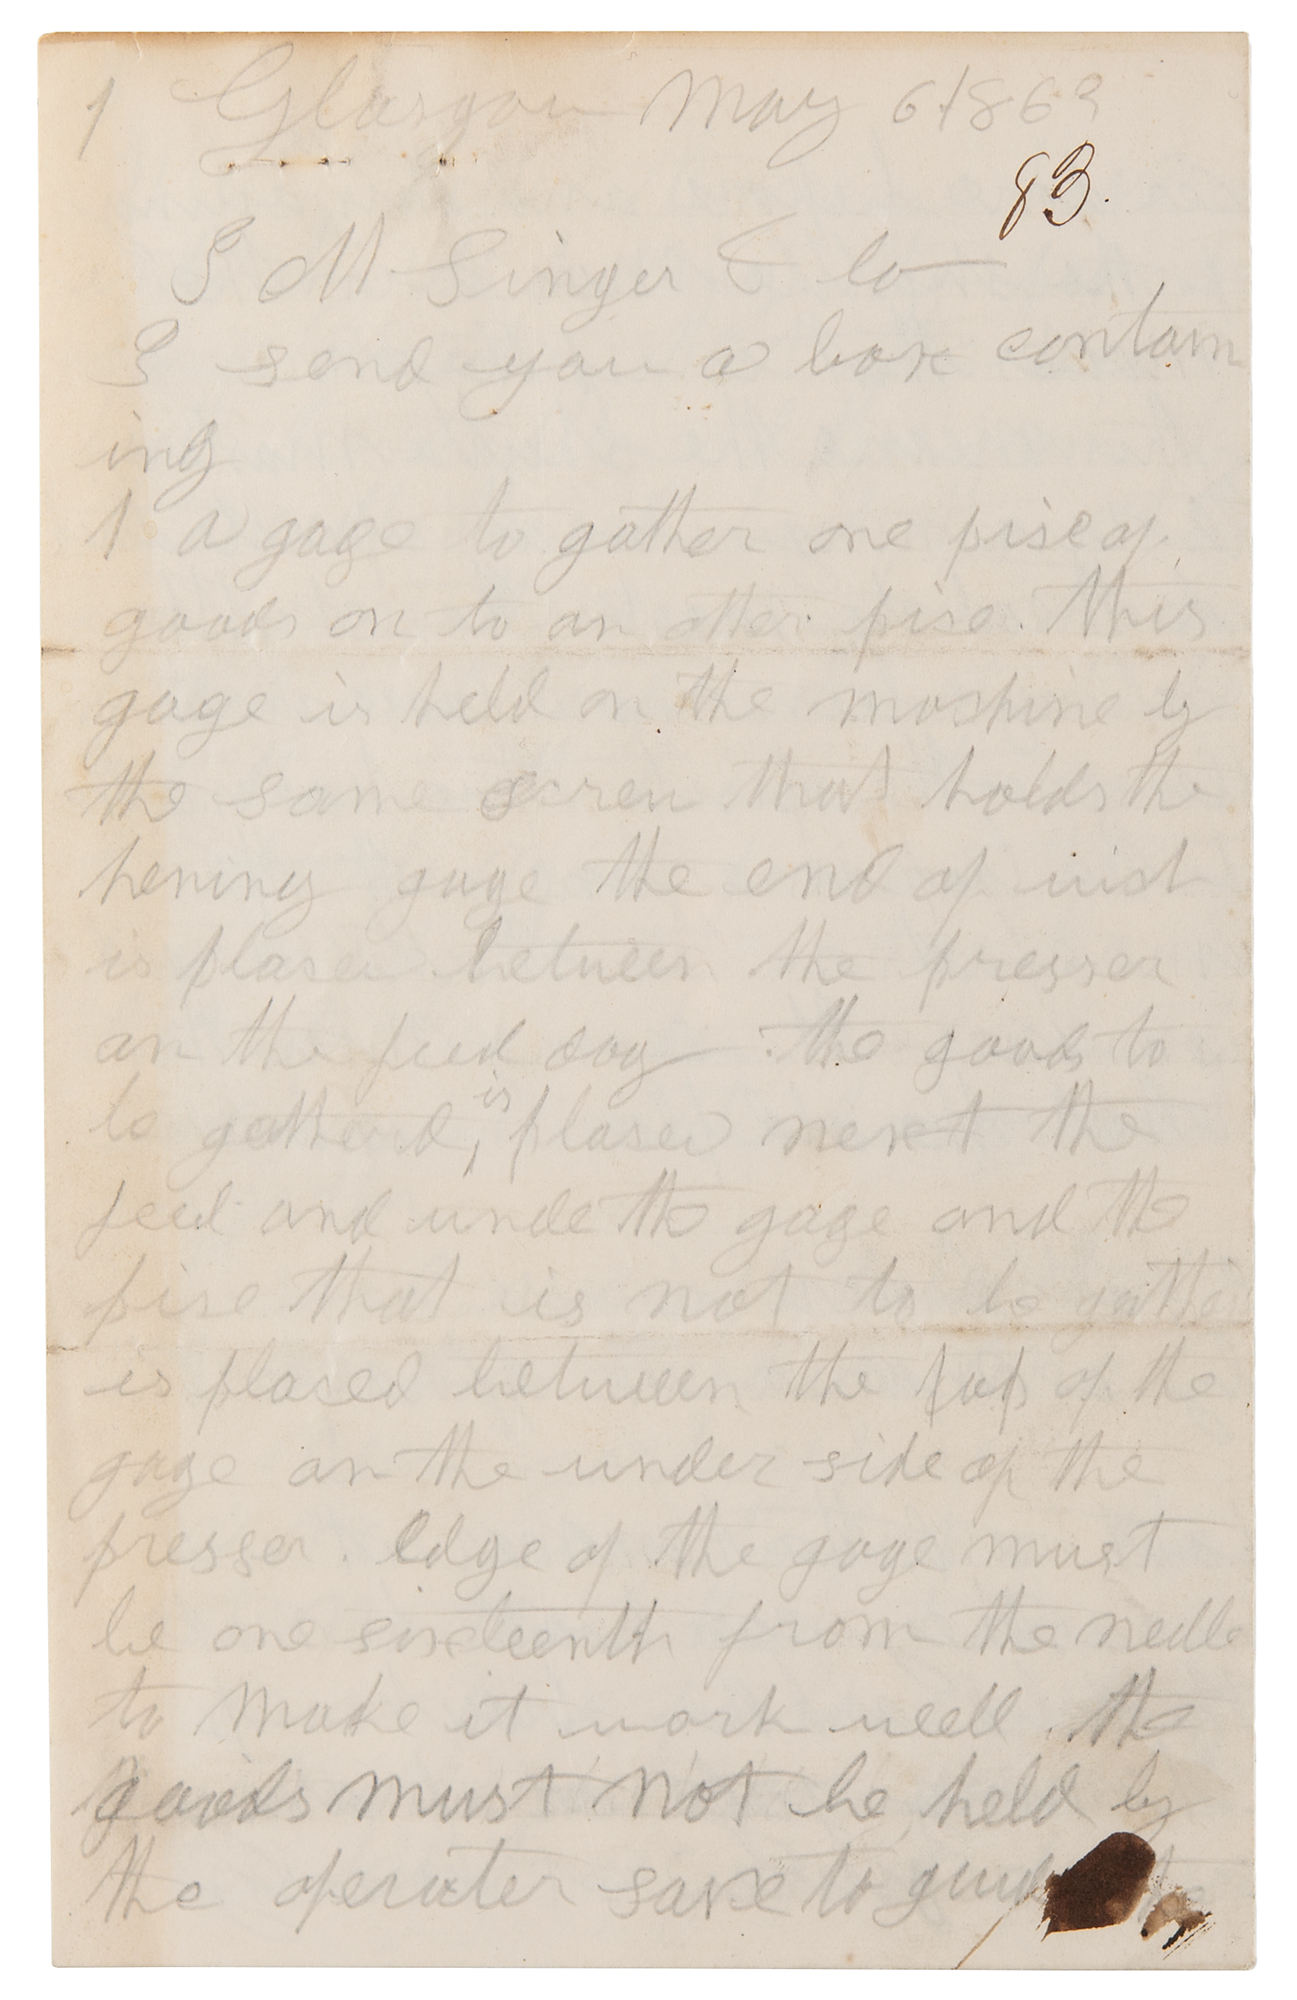 1 Glasgow May 6 1863
83.
I M Singer & Co
I send you a box contain
ing
1 a gage to gather one pise of
goods on to an other pise. this
gage is held on the mashine by
the same screw that holds the
heming gage the end of wich
is plased between the presser
an the feed dog the goods to
be gatherd, is plased next the
feed and unde the gage and the
pise that is not to be gather
is plased between the top of the
gage an the under side of the
presser. Edge of the gage must
be one sixteenth from the nedle
to make it work well. the
goods must not be held by
the operater save to guide the